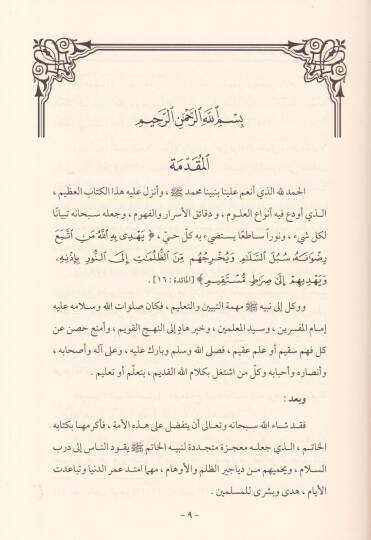 بِسْمِ ٱللَّهِ ٱلرَّحْمَٰنِ ٱلرَّحِيمِ
المُقَدّمَة
الحمد لله الذي أنعم علينا بنبينا محمد ﷺ ، وأنزل عليه هذا الكتاب العظيم ،
الـذي أودع فيه أنواع العلـوم ، و دقائق الأسرار والفهوم ، وجعله سبحانه تبيانًا
لكل شيء ، ونوراً ساطعًا يستضيء به كلّ حيّ ، ﴿ يَهْدِى بِهِ ٱللَّهُ مَنِ ٱتَّبَعَ
رِضْوَٰنَهُۥ سُبُلَ ٱلسَّلَٰمِ وَيُخْرِجُهُم مِّنَ ٱلظُّلُمَٰتِ إِلَى ٱلنُّورِ بِإِذْنِهِۦ
وَيَهْدِيهِمْ إِلَىٰ صِرَٰطٍ مُّسْتَقِيمٍ ﴾ [المائدة : ١٦] .
ووكل إلى نبيه ﷺ مهمة التبيين والتعليم ، فكان صلوات الله وسلامه عليه
إمام المفسرين ، وسيـد المعلمين ، وخير هادٍ إلى النهج القويم ، وأمنع حصن عن
كل فهم سقيم أو علم عقيم ، فصلى الله وسلم وبارك عليه ، وعلى آله وأصحابه ،
وأنصاره وأحبابه وكلّ من اشتغل بكلام الله القديم ، بتعلّم أو تعليم .
وبعد :
فقـد شاء الله سبحانه وتعالى أن يتفضل على هذه الأمة ، فأكرمها بكتابه
الخاتـم ، الـذي جعله معجزة متجددة لنبيـه الخاتم ﷺ يقود الناس إلى درب
السلام ، ويحميهم مـن دياجير الظلم والأوهام ، مهما امتد عمر الدنيا وتباعدت
الأيام ، هدى وبشرى للمسلمين .
- ٩ -